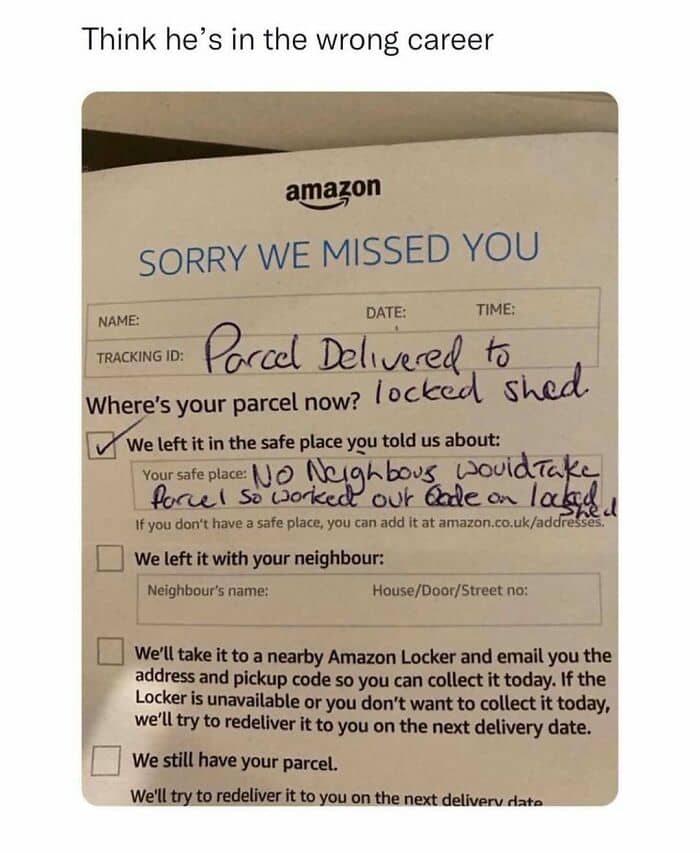 Think he's in the wrong career
amazon
SORRY WE MISSED YOU
NAME: DATE: TIME:
TRACKING ID: Parcel Delivered to
Where's your parcel now? locked shed
We left it in the safe place you told us about:
Your safe place: NO Neighbours would Take
Parcel so worked out Code on locked
shed
If you don't have a safe place, you can add it at amazon.co.uk/addresses.
We left it with your neighbour:
Neighbour's name: House/Door/Street no:
We'll take it to a nearby Amazon Locker and email you the
address and pickup code so you can collect it today. If the
Locker is unavailable or you don't want to collect it today,
we'll try to redeliver it to you on the next delivery date.
We still have your parcel.
We'll try to redeliver it to you on the next delivery date